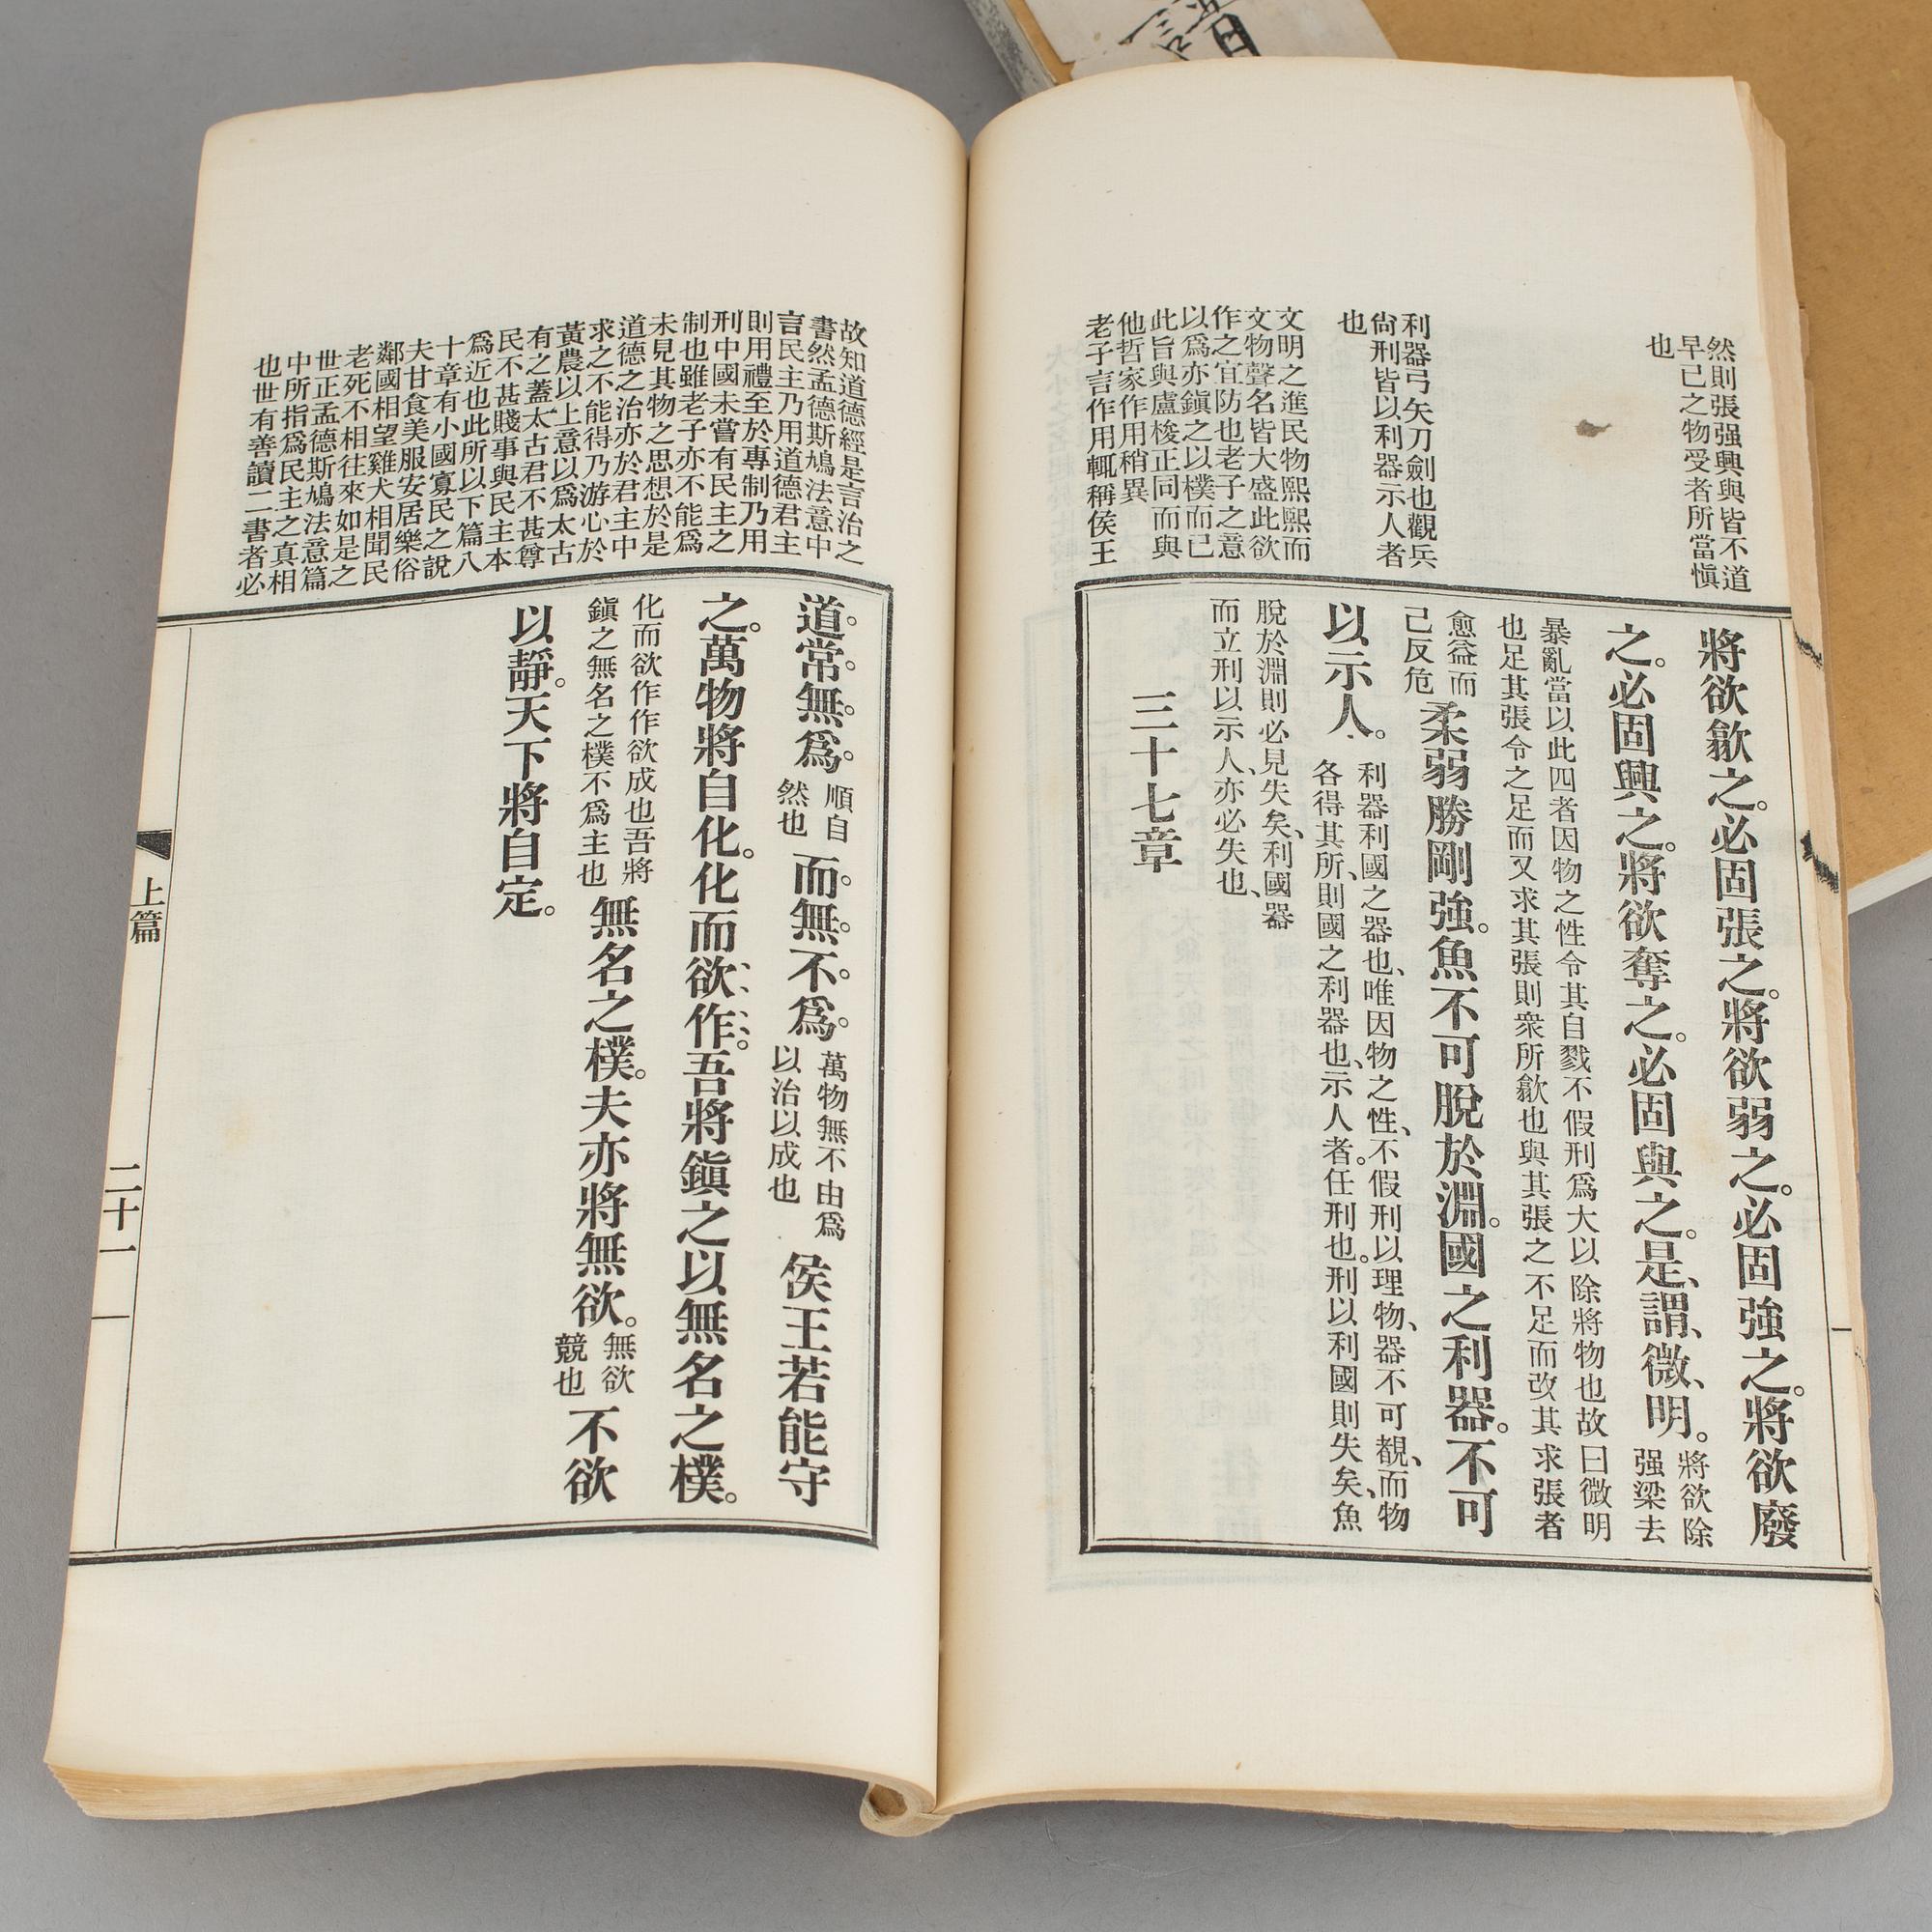 然則張强興與皆不道
早已之物受者所當愼
也
利器弓矢刀劍也觀兵
尙刑皆以利器示人者
也
文明之進民物熙熙而
文物聲名皆大盛此欲
作之宜防也老子之意
以爲亦鎭之以樸而已
此旨與盧梭正同而與
他哲家作用稍異
老子言作用輒稱侯王
將欲歙之。必固張之。將欲弱之。必固強之。將欲廢
之。必固興之。將欲奪之。必固與之。是、謂、微、明。
將欲除
强梁去
暴亂當以此四者因物之性令其自戮不假刑爲大以除將物也故曰微明
也足其張令之足而又求其張則衆所歙也與其張之不足而改其求張者
愈益而
己反危
柔弱勝剛強。魚不可脫於淵。國之利器。不可
以示人。
利器利國之器也、唯因物之性、不假刑以理物、器不可覩、而物
各得其所、則國之利器也、示人者。任刑也。刑以利國則失矣、魚
脫於淵則必見失矣、利國器
而立刑以示人、亦必失也、
三十七章
故知道德經是言治之
書然孟德斯鳩法意中
言民主乃用道德君主
則用禮至於專制乃用
刑中國未嘗有民主之
制也雖老子亦不能爲
未見其物之思想於是
道德之治亦於君主中
求之不能得乃游心於
黃農以上意以爲太古
有之蓋太古君不甚尊
民不甚賤事與民主本
爲近也此所以下篇八
十章有小國寡民之說
夫甘食美服安居樂俗
鄰國相望雞犬相聞民
老死不相往來如是之
世正孟德斯鳩法意篇
中所指爲民主之真相
也世有善讀二書者必
道。常。無。爲。
順自
然也
而。無。不。爲。
萬物無不由爲
以治以成也
侯王若能守
之。萬物將自化。化而欲、作。吾將鎭之以無名之樸。
化而欲作作欲成也吾將
鎭之無名之樸不爲主也
無名之樸。夫亦將無欲。
無欲
競也
不欲
以靜。天下將自定。
上篇
二十一